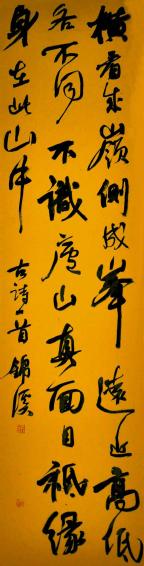 橫看成嶺側成峯遠近高低
各不同不識廬山真面目祗緣
身在此山中
古詩一首錦溪